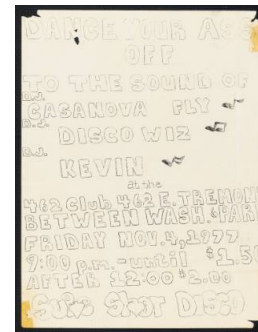 DANCE YOUR ASS
OFF
TO THE SOUND OF
D.J.
CASANOVA FLY
D.J.
DISCO WIZ
D.J.
KEVIN
at the
462 Club 462 E. TREMONT
BETWEEN WASH. & PARK
FRIDAY NOV. 4, 1977
9:00 p.m. - until $1.50
AFTER 12:00 $2.00
SURE SHOT DISCO